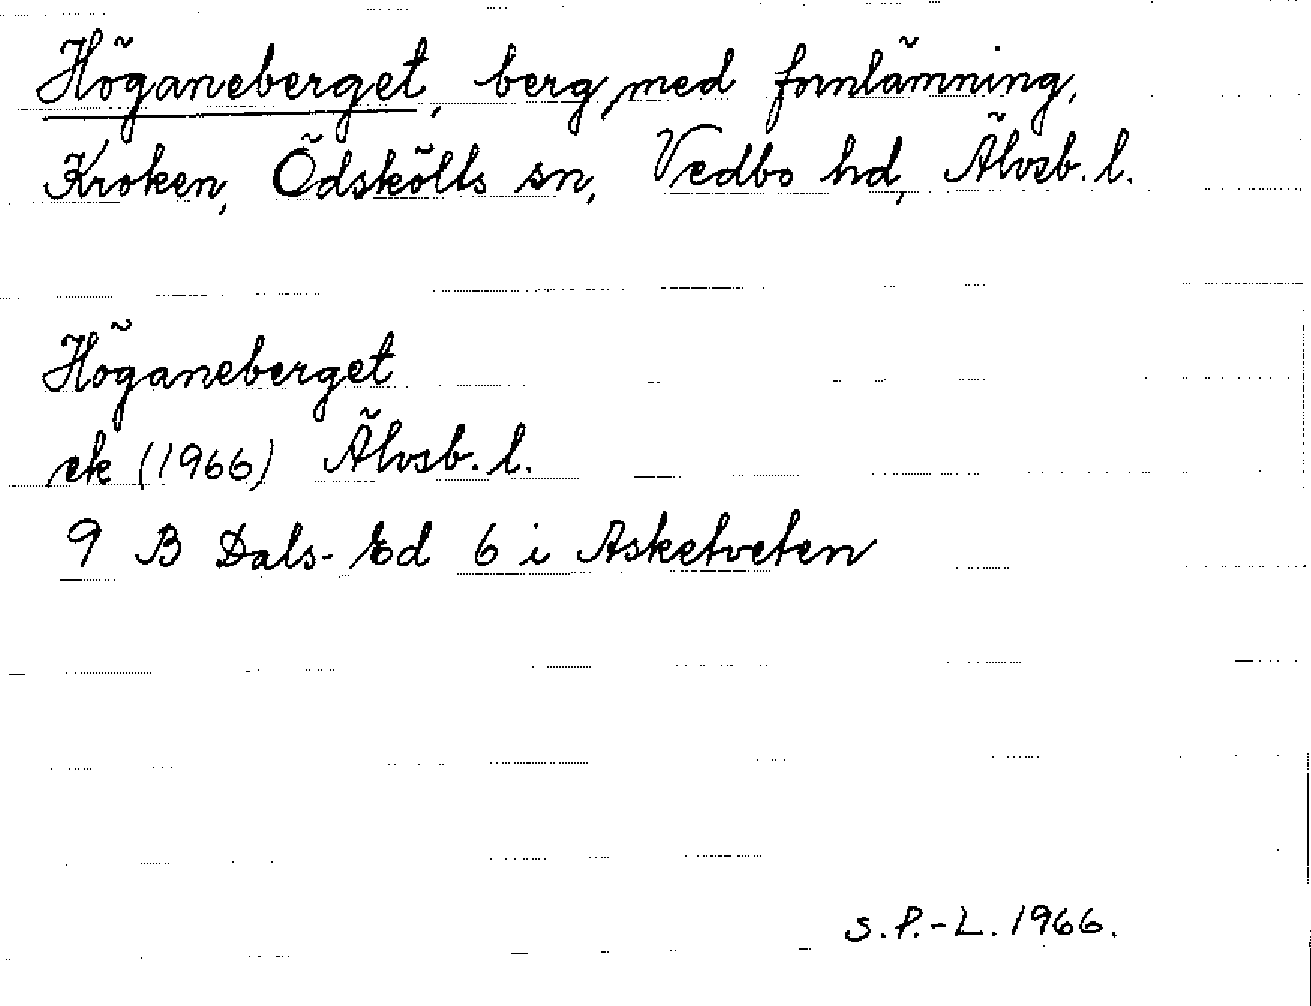 Höganeberget, berg med fornlämning,
Kroken, Ödskölts sn, Vedbo hd, Älvsb. l.
Höganeberget
ek (1966) Älvsb. l.
9 B Dals-Ed 6 i Asketveten
S.P.-L. 1966.